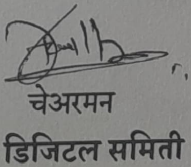 चेअरमन
डिजिटल समिती